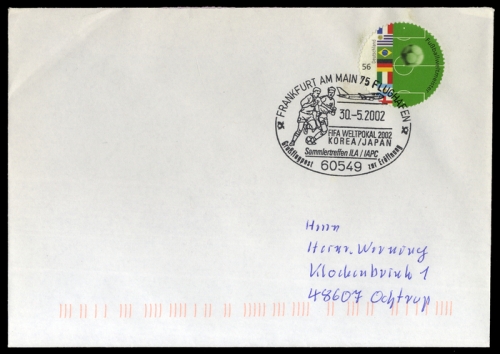 Deutschland
56
FRANKFURT AM MAIN 75 FLUGHAFEN
30.-5.2002
FIFA WELTPOKAL 2002
KOREA/JAPAN
Sammlertreffen ILA / IAPC
Großflugpost zur Eröffnung
60549
Herrn
Heinr. Werning
Klockenbrink 1
48607 Ochtrup